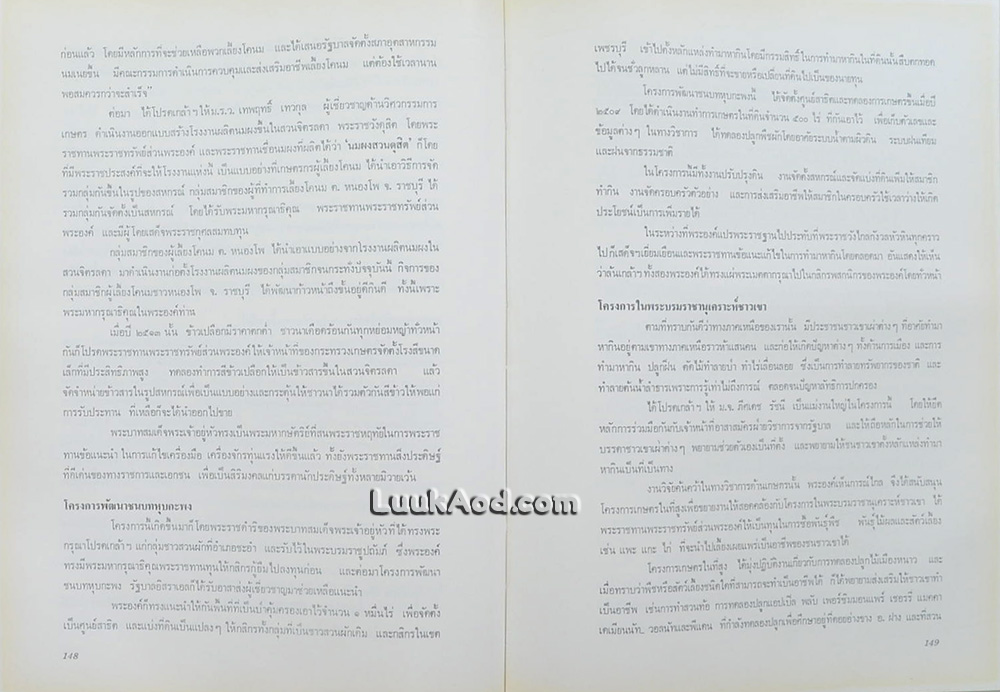 ก่อนแล้ว โดยมีหลักการที่จะช่วยเหลือพวกเลี้ยงโคนม และได้เสนอรัฐบาลจัดตั้งสภาอุตสาหกรรม
นมเนยขึ้น มีคณะกรรมการดำเนินการควบคุมและส่งเสริมอาชีพเลี้ยงโคนม แต่ต้องใช้เวลานาน
พอสมควรกว่าจะสำเร็จ"
ต่อมา ได้โปรดเกล้าฯ ให้ ม.ร.ว. เทพฤทธิ์ เทวกุล ผู้เชี่ยวชาญด้านวิศวกรรมการ
เกษตร ดำเนินงานออกแบบสร้างโรงงานผลิตนมผงขึ้นในสวนจิตรลดา พระราชวังดุสิต โดยพระ
ราชทานพระราชทรัพย์ส่วนพระองค์ และพระราชทานชื่อนมผงที่ผลิตได้ว่า 'นมผงสวนดุสิต' ก็โดย
ที่มีพระราชประสงค์ที่จะให้โรงงานแห่งนี้ เป็นแบบอย่างที่เกษตรกรผู้เลี้ยงโคนม ได้นำเอาวิธีการจัด
รวมกลุ่มกันขึ้นในรูปของสหกรณ์ กลุ่มสมาชิกของผู้ที่ทำการเลี้ยงโคนม ต. หนองโพ จ. ราชบุรี ได้
รวมกลุ่มกันจัดตั้งเป็นสหกรณ์ โดยได้รับพระมหากรุณาธิคุณ พระราชทานพระราชทรัพย์ส่วน
พระองค์ และมีผู้โดยเสด็จพระราชกุศลสมทบทุน
กลุ่มสมาชิกของผู้เลี้ยงโคนม ต. หนองโพ ได้นำเอาแบบอย่างจากโรงงานผลิตนมผงใน
สวนจิตรลดา มาดำเนินงานก่อตั้งโรงงานผลิตนมผงของกลุ่มสมาชิกจนกระทั่งปัจจุบันนี้ กิจการของ
กลุ่มสมาชิกผู้เลี้ยงโคนมชาวหนองโพ จ. ราชบุรี ได้พัฒนาก้าวหน้าถึงขั้นอยู่ดีกินดี ทั้งนี้เพราะ
พระมหากรุณาธิคุณในพระองค์ท่าน
เมื่อปี ๒๕๑๓ นั้น ข้าวเปลือกมีราคาตกต่ำ ชาวนาเดือดร้อนกันทุกหย่อมหญ้าทั่วหน้า
กันก็โปรดพระราชทานพระราชทรัพย์ส่วนพระองค์ ให้เจ้าหน้าที่ของกระทรวงเกษตรจัดตั้งโรงสีขนาด
เล็กที่มีประสิทธิภาพสูง ทดลองทำการสีข้าวเปลือกให้เป็นข้าวสารขึ้นในสวนจิตรลดา แล้ว
จัดจำหน่ายข้าวสารในรูปสหกรณ์เพื่อเป็นแบบอย่างและกระตุ้นให้ชาวนาได้รวมตัวกันสีข้าวให้พอแก่
การรับประทาน ที่เหลือก็จะได้นำออกไปขาย
พระบาทสมเด็จพระเจ้าอยู่หัวทรงเป็นพระมหากษัตริย์ที่สนพระราชหฤทัยในการพระราช
ทานข้อแนะนำ ในการแก้ไขเครื่องมือ เครื่องจักรทุ่นแรงให้ดีขึ้นแล้ว ทั้งยังพระราชทานสิ่งประดิษฐ์
ที่ดีเด่นของทางราชการและเอกชน เพื่อเป็นสิริมงคลแก่บรรดานักประดิษฐ์ทั้งหลายมิวายเว้น
โครงการพัฒนาชนบทหุบกะพง
โครงการนี้เกิดขึ้นมาก็โดยพระราชดำริของพระบาทสมเด็จพระเจ้าอยู่หัวที่ได้ทรงพระ
กรุณาโปรดเกล้าฯ แก่กลุ่มชาวสวนผักที่อำเภอชะอำ และรับไว้ในพระบรมราชูปถัมภ์ ซึ่งพระองค์
ทรงมีพระมหากรุณาธิคุณพระราชทานทุนให้กสิกรกู้ยืมไปลงทุนก่อน และต่อมาโครงการพัฒนา
ชนบทหุบกะพง รัฐบาลอิสราเอลก็ได้รับอาสาส่งผู้เชี่ยวชาญมาช่วยเหลือแนะนำ
พระองค์ก็ทรงแนะนำให้กันพื้นที่ที่เป็นป่าคุ้มครองเอาไว้จำนวน ๑ หมื่นไร่ เพื่อจัดตั้ง
เป็นศูนย์สาธิต และแบ่งที่ดินเป็นแปลงๆ ให้กสิกรทั้งกลุ่มที่เป็นชาวสวนผักเดิม และกสิกรในเขต
148
เพชรบุรี เข้าไปตั้งหลักแหล่งทำมาหากินโดยมีกรรมสิทธิ์ในการทำมาหากินในที่ดินนั้นสืบตกทอด
ไปได้จนชั่วลูกหลาน แต่ไม่มีสิทธิ์ที่จะขายหรือเปลี่ยนที่ดินไปเป็นของนายทุน
โครงการพัฒนาชนบทหุบกะพงนี้ ได้จัดตั้งศูนย์สาธิตและทดลองการเกษตรขึ้นเมื่อปี
๒๕๐๙ โดยได้ดำเนินการทำการเกษตรในที่ดินจำนวน ๕๐๐ ไร่ ที่กันเอาไว้ เพื่อเก็บตัวเลขและ
ข้อมูลต่างๆ ในทางวิชาการ ได้ทดลองปลูกพืชผักโดยอาศัยระบบน้ำตามผิวดิน ระบบฝนเทียม
และฝนจากธรรมชาติ
ในโครงการนี้มีทั้งงานปรับปรุงดิน งานจัดตั้งสหกรณ์และจัดแบ่งที่ดินเพิ่มให้สมาชิก
ทำกิน งานจัดครอบครัวตัวอย่าง และการส่งเสริมอาชีพให้สมาชิกในครอบครัวใช้เวลาว่างให้เกิด
ประโยชน์เป็นการเพิ่มรายได้
ในระหว่างที่พระองค์แปรพระราชฐานไปประทับที่พระราชวังไกลกังวลหัวหินทุกคราว
ไปก็เสด็จฯ เยี่ยมเยือนและพระราชทานข้อแนะแก้ไขในการทำมาหากินโดยตลอดมา อันแสดงให้เห็น
ว่าล้นเกล้าฯ ทั้งสองพระองค์ได้ทรงแผ่พระเมตตากรุณาไปในกสิกรพสกนิกรของพระองค์โดยทั่วหน้า
โครงการในพระบรมราชานุเคราะห์ชาวเขา
ตามที่ทราบกันดีว่าทางภาคเหนือของเรานั้น มีประชาชนชาวเขาเผ่าต่างๆ ที่อาศัยทำมา
หากินอยู่ตามเขาทางภาคเหนือราวห้าแสนคน และก่อให้เกิดปัญหาต่างๆ ทั้งด้านการเมือง และการ
ทำมาหากิน ปลูกฝิ่น ตัดไม้ทำลายป่า ทำไร่เลื่อนลอย ซึ่งเป็นการทำลายทรัพยากรของชาติ และ
ทำลายต้นน้ำลำธารเพราะการรู้เท่าไม่ถึงการณ์ ตลอดจนปัญหาลัทธิการปกครอง
ได้โปรดเกล้าฯ ให้ ม.จ. ภีศเดช รัชนี เป็นแม่งานใหญ่ในโครงการนี้ โดยให้ยึด
หลักการร่วมมือกันกับเจ้าหน้าที่อาสาสมัครฝ่ายวิชาการจากรัฐบาล และให้ถือหลักในการช่วยให้
บรรดาชาวเขาเผ่าต่างๆ พยายามช่วยตัวเองเป็นที่ตั้ง และพยายามให้ชนชาวเขาตั้งหลักแหล่งทำมา
หากินเป็นที่เป็นทาง
งานวิจัยค้นคว้าในทางวิชาการด้านเกษตรนั้น พระองค์เห็นการณ์ไกล จึงได้สนับสนุน
โครงการเกษตรในที่สูงเพื่อขยายงานให้สอดคล้องกับโครงการในพระบรมราชานุเคราะห์ชาวเขา ได้
พระราชทานพระราชทรัพย์ส่วนพระองค์ให้เป็นทุนในการซื้อพันธุ์พืช พันธุ์ไม้ผลและสัตว์เลี้ยง
เช่น แพะ แกะ ไก่ ที่จะนำไปเลี้ยงเผยแพร่เป็นอาชีพของชนชาวเขาได้
โครงการเกษตรในที่สูง ได้มุ่งปฏิบัติงานเกี่ยวกับการทดลองปลูกไม้เมืองหนาว และ
เมื่อทราบว่าพืชหรือสัตว์เลี้ยงชนิดใดที่สามารถจะทำเป็นอาชีพได้ ก็ให้พยายามส่งเสริมให้ชาวเขาทำ
เป็นอาชีพ เช่นการทำสวนท้อ การทดลองปลูกแอปเปิล พลับ เพอร์ซิมมอนแพร์ เชอรี่ แมคคา
เดเมียนนัท วอลนัทและพีแคน ที่กำลังทดลองปลูกเพื่อศึกษาอยู่ที่ดอยอ่างขาง อ. ฝาง และที่สวน
149
LuukAod.com